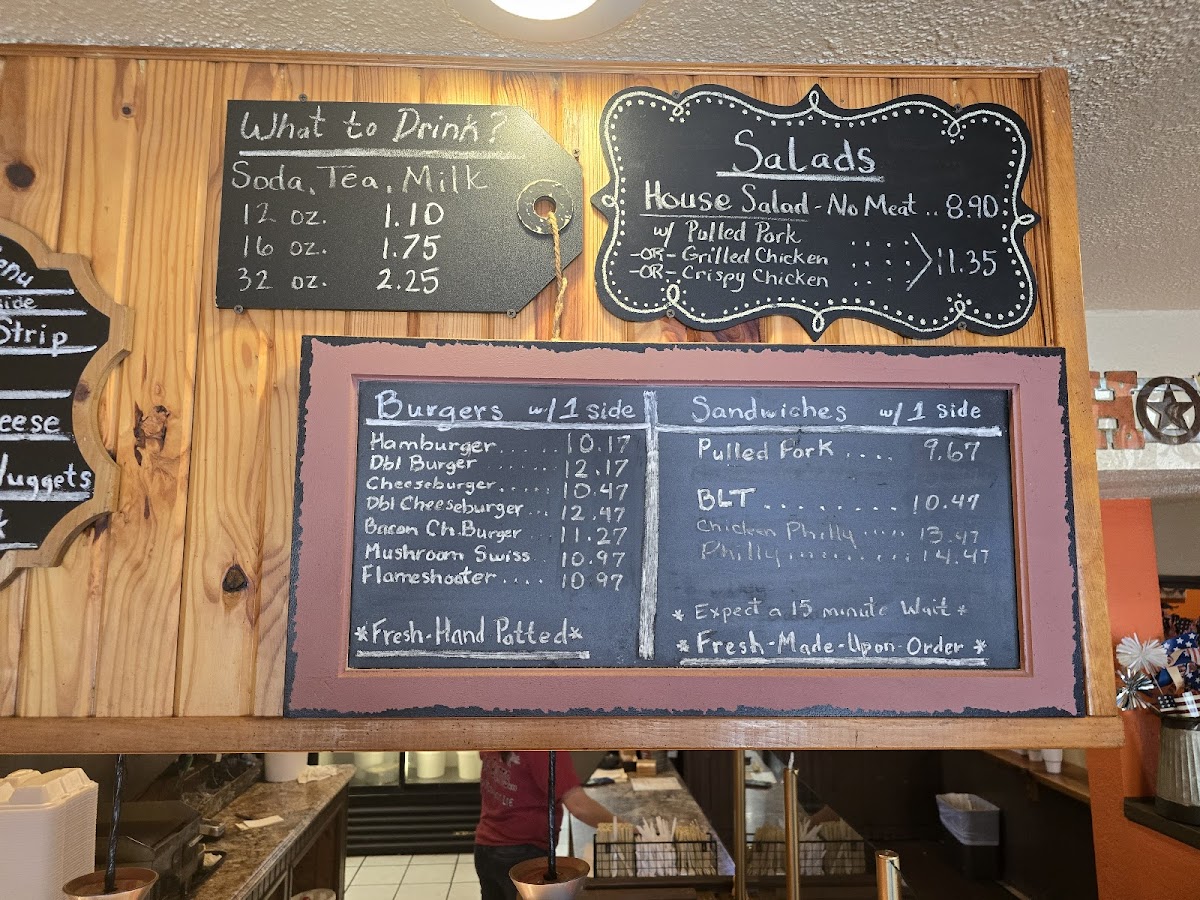 What to Drink?
Soda, Tea, Milk
12 oz. 1.10
16 oz. 1.75
32 oz. 2.25
Salads
House Salad - No Meat .. 8.90
w/ Pulled Pork
-OR- Grilled Chicken
-OR- Crispy Chicken
11.35
enu
ide
Strip
eese
Nuggets
k
Burgers w/1 side
Hamburger...... 10.17
Dbl Burger 12.17
Cheeseburger..... 10.47
Dbl Cheeseburger... 12.47
Bacon Ch.Burger.. 11.27
Mushroom Swiss.. 10.97
Flameshooter.... 10.97
*Fresh-Hand Pattied*
Sandwiches w/1 side
Pulled Pork .... 9.67
BLT ........ 10.47
Chicken Philly ..... 13.47
Philly ............ 14.47
* Expect a 15 minute Wait *
* Fresh-Made-Upon-Order *
H